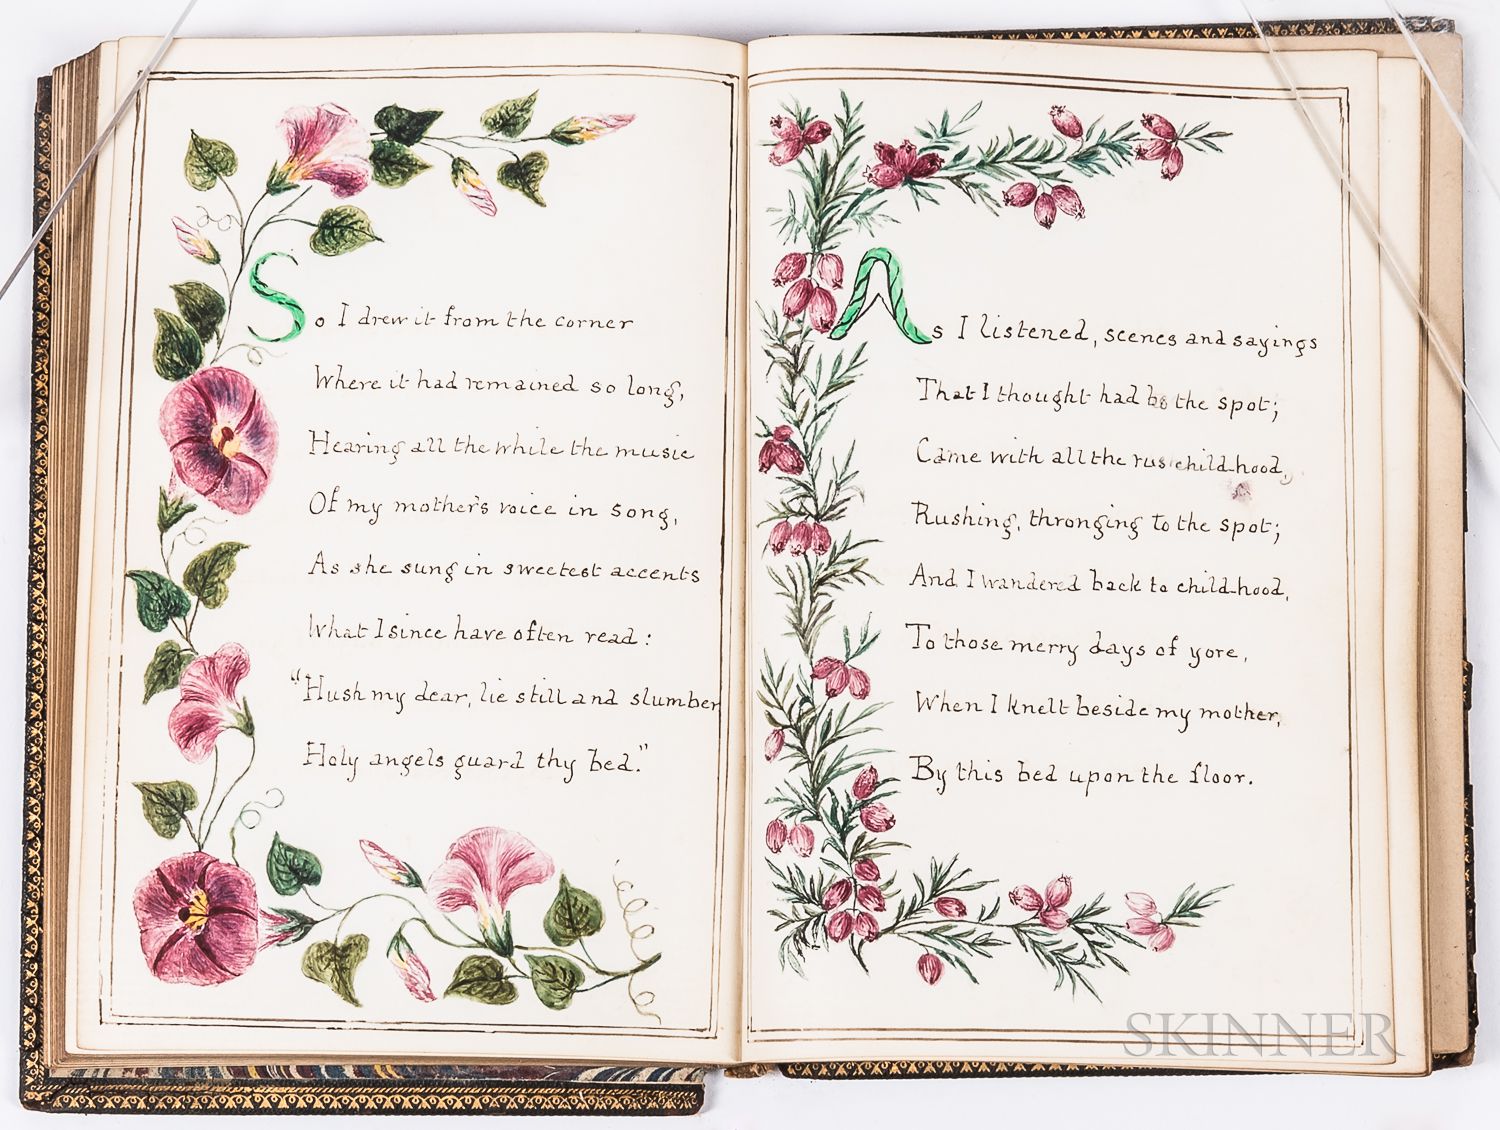 So I drew it from the corner
Where it had remained so long,
Hearing all the while the music
Of my mother's voice in song,
As she sung in sweetest accents
What I since have often read:
"Hush my dear, lie still and slumber
Holy angels guard thy bed."
As I listened, scenes and sayings
That I thought had the spot;
Came with all the child-hood,
Rushing, thronging to the spot;
And I wandered back to child-hood,
To those merry days of yore,
When I knelt beside my mother,
By this bed upon the floor.
SKINNER